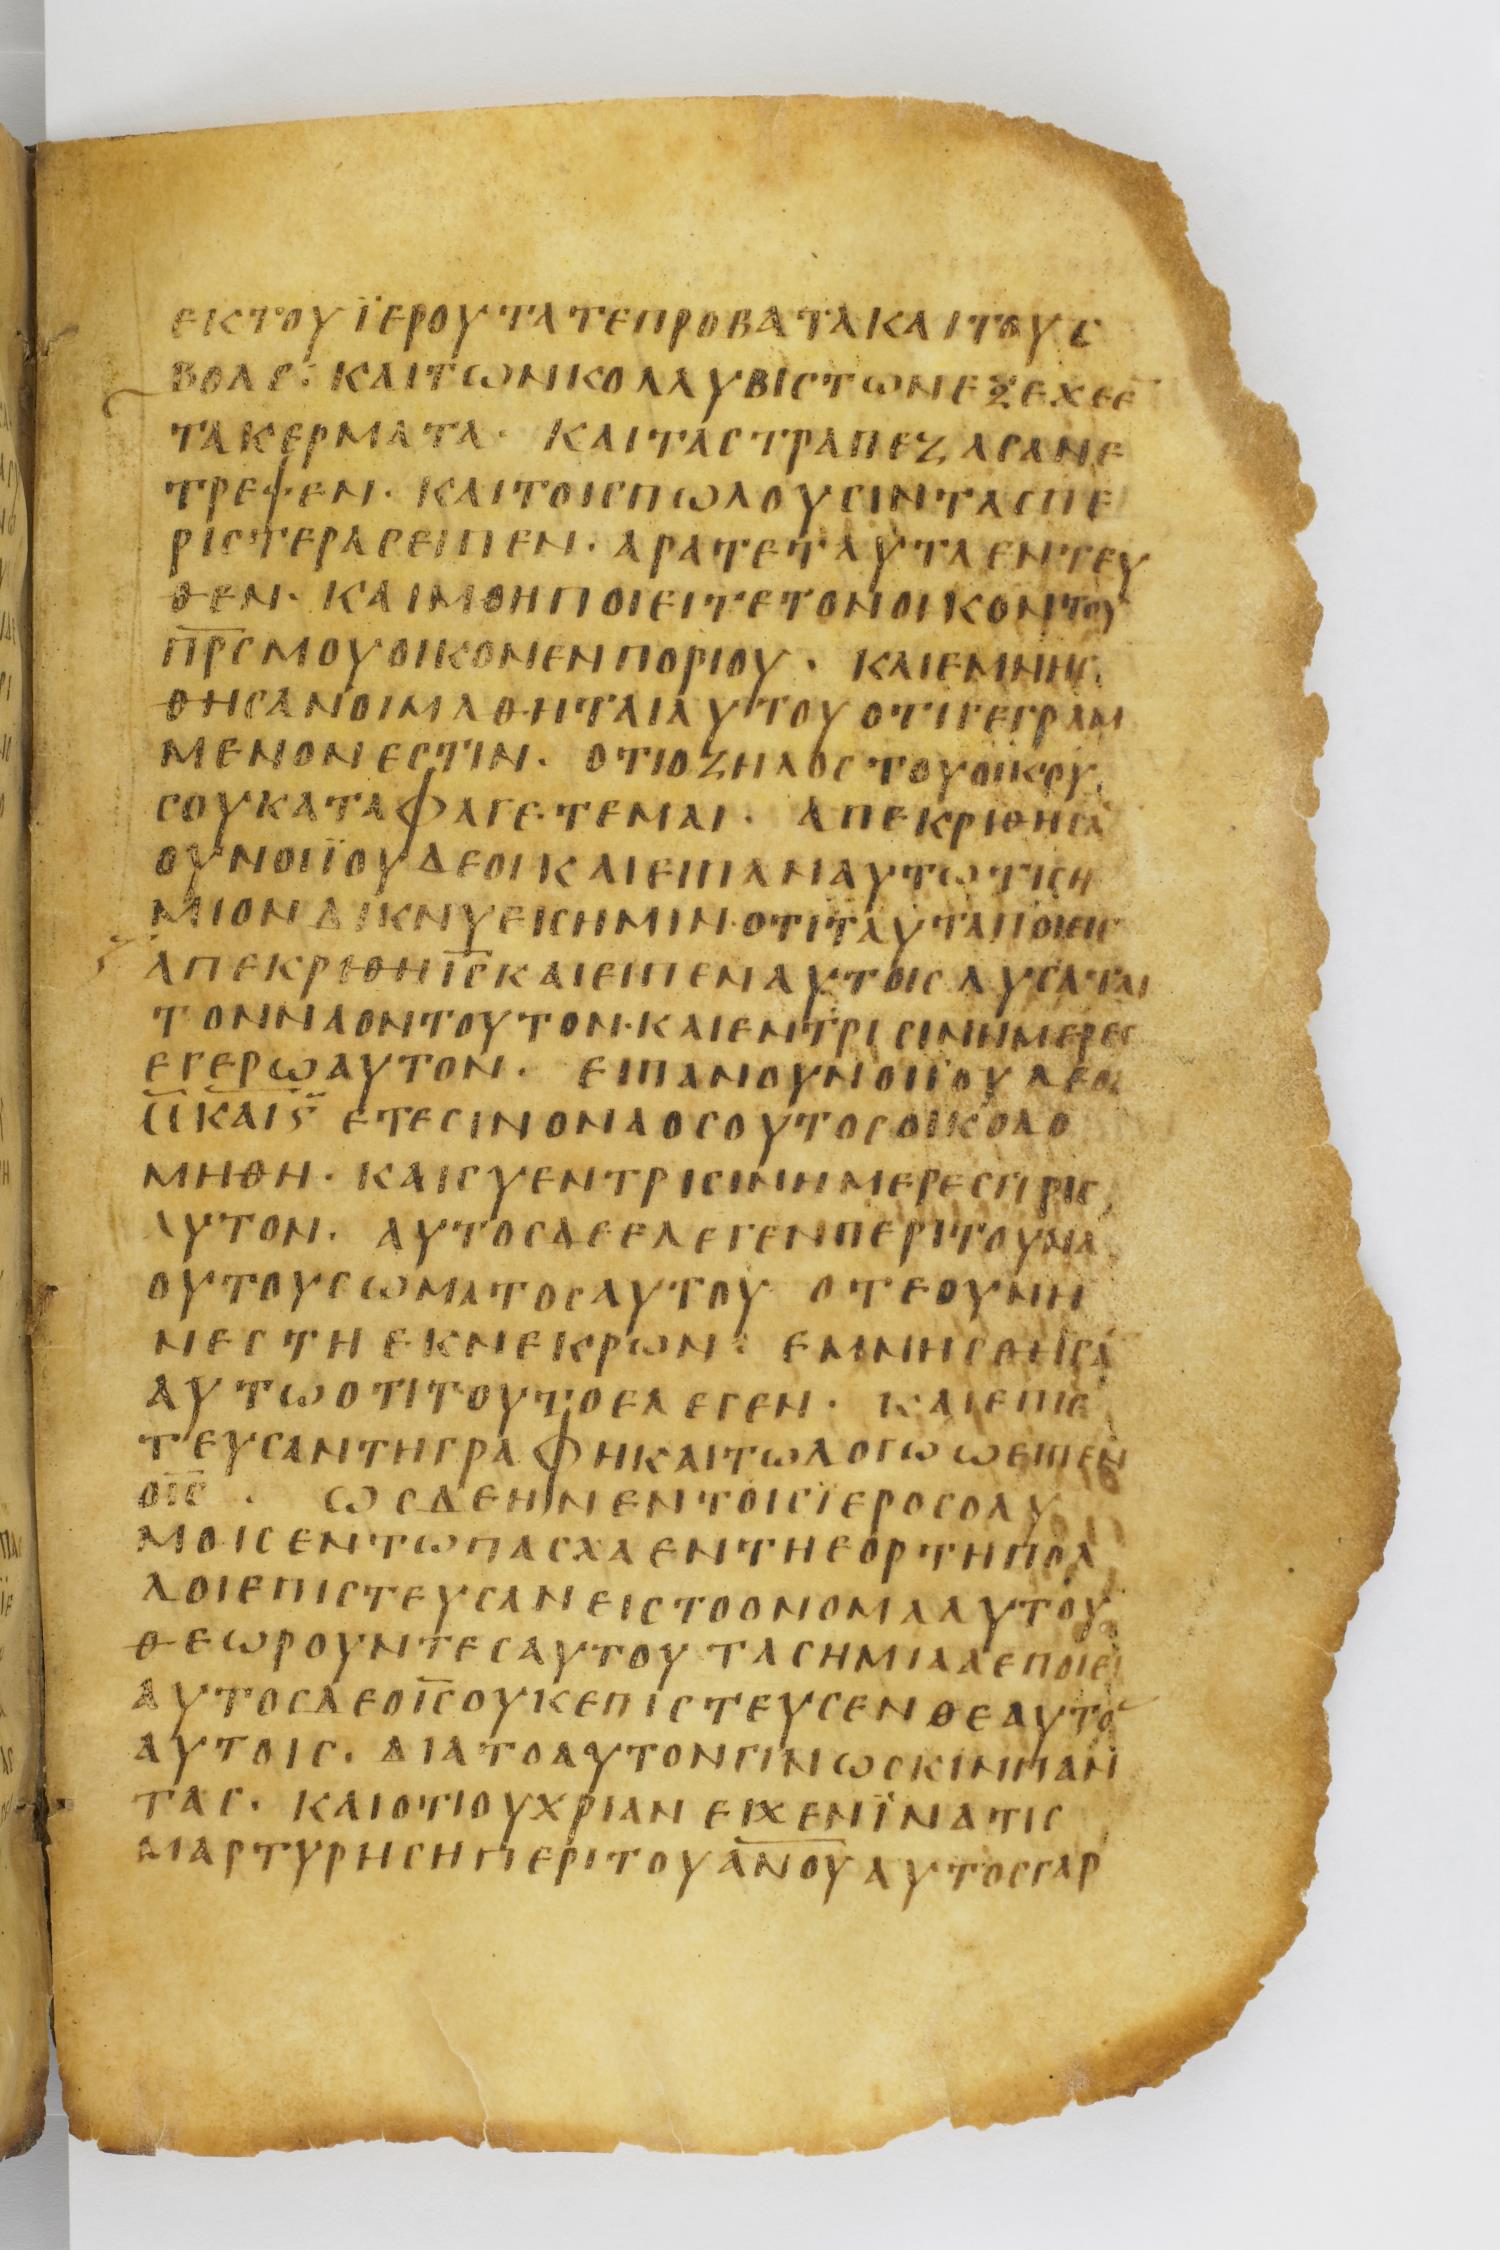 ΕΚΤΟΥΪΕΡΟΥΤΑΤΕΠΡΟΒΑΤΑΚΑΙΤΟΥΣ
ΒΟΑΣ· ΚΑΙΤΩΝΚΟΛΛΥΒΙΣΤΩΝΕΞΕΧΕΕ̅
ΤΑΚΕΡΜΑΤΑ· ΚΑΙΤΑΣΤΡΑΠΕΖΑΣΑΝΕ
ΤΡΕΨΕΝ· ΚΑΙΤΟΙΣΠΩΛΟΥΣΙΝΤΑΣΠΕ
ΡΙΣΤΕΡΑΣΕΙΠΕΝ· ΑΡΑΤΕΤΑΥΤΑΕΝΤΕΥ
ΘΕΝ· ΚΑΙΜΘΗΠΟΙΕΙΤΕΤΟΝΟΙΚΟΝΤΟΥ
Π̅Ρ̅Σ̅ΜΟΥΟΙΚΟΝΕΝΠΟΡΙΟΥ· ΚΑΙΕΜΝΗΣ
ΘΗΣΑΝΟΙΜΑΘΗΤΑΙΑΥΤΟΥΟΤΙΓΕΓΡΑΜ
ΜΕΝΟΝΕΣΤΙΝ· ΟΤΙΟΖΗΛΟΣΤΟΥΟΙΚΟΥ
ΣΟΥΚΑΤΑΦΑΓΕΤΕΜΑΙ· ΑΠΕΚΡΙΘΗΣΑ̅
ΟΥΝΟΙΪΟΥΔΕΟΙΚΑΙΕΙΠΑΝΑΥΤΩΤΙΣΗ
ΜΙΟΝΔΙΚΝΥΕΙΣΗΜΙΝ·ΟΤΙΤΑΥΤΑΠΟΙΕΙΣ
ΑΠΕΚΡΙΘΗΙ̅Σ̅ΚΑΙΕΙΠΕΝΑΥΤΟΙΣΛΥΣΑΤΑΙ
ΤΟΝΝΑΟΝΤΟΥΤΟΝ·ΚΑΙΕΝΤΡΙΣΙΝΗΜΕΡΕΣ
ΕΓΕΡΩΑΥΤΟΝ· ΕΙΠΑΝΟΥΝΟΙΪΟΥΔΕΟΙ
Μ̅ΚΑΙϚ̅ ΕΤΕΣΙΝΟΝΑΟΣΟΥΤΟΣΟΙΚΟΔΟ
ΜΗΘΗ· ΚΑΙΣΥΕΝΤΡΙΣΙΝΗΜΕΡΕΣΓΙΡΙΣ
ΑΥΤΟΝ· ΑΥΤΟΣΔΕΕΛΕΓΕΝΠΕΡΙΤΟΥΝΑ
ΟΥΤΟΥΣΩΜΑΤΟΣΑΥΤΟΥ ΟΤΕΟΥΝΗ
ΝΕΣΤΗΕΚΝΕΚΡΩΝ· ΕΜΝΗΣΘΗΣΑ̅
ΑΥΤΩΟΤΙΤΟΥΤΟΕΛΕΓΕΝ· ΚΑΙΕΠΙΣ
ΤΕΥΣΑΝΤΗΓΡΑΦΗΚΑΙΤΩΛΟΓΩΩΕΙΠΕΝ
ΟΙ̅Σ̅ · ΩΣΔΕΗΝΕΝΤΟΙΣΪΕΡΟΣΟΛΥ
ΜΟΙΣΕΝΤΩΠΑΣΧΑΕΝΤΗΕΟΡΤΗΠΟΛ
ΛΟΙΕΠΙΣΤΕΥΣΑΝΕΙΣΤΟΟΝΟΜΑΑΥΤΟΥ
ΘΕΩΡΟΥΝΤΕΣΑΥΤΟΥΤΑΣΗΜΙΑΑΕΠΟΙΕΙ
ΑΥΤΟΣΔΕΟΙ̅Σ̅ΟΥΚΕΠΙΣΤΕΥΣΕΝΘΕΑΥΤΟ̅
ΑΥΤΟΙΣ· ΔΙΑΤΟΑΥΤΟΝΓΙΝΩΣΚΙΝΠΑΝ
ΤΑΣ· ΚΑΙΟΤΙΟΥΧΡΙΑΝΕΙΧΕΝΪΝΑΤΙΣ
ΜΑΡΤΥΡΗΣΗΠΕΡΙΤΟΥΑ̅Ν̅Ο̅Υ̅ΑΥΤΟΣΓΑΡ